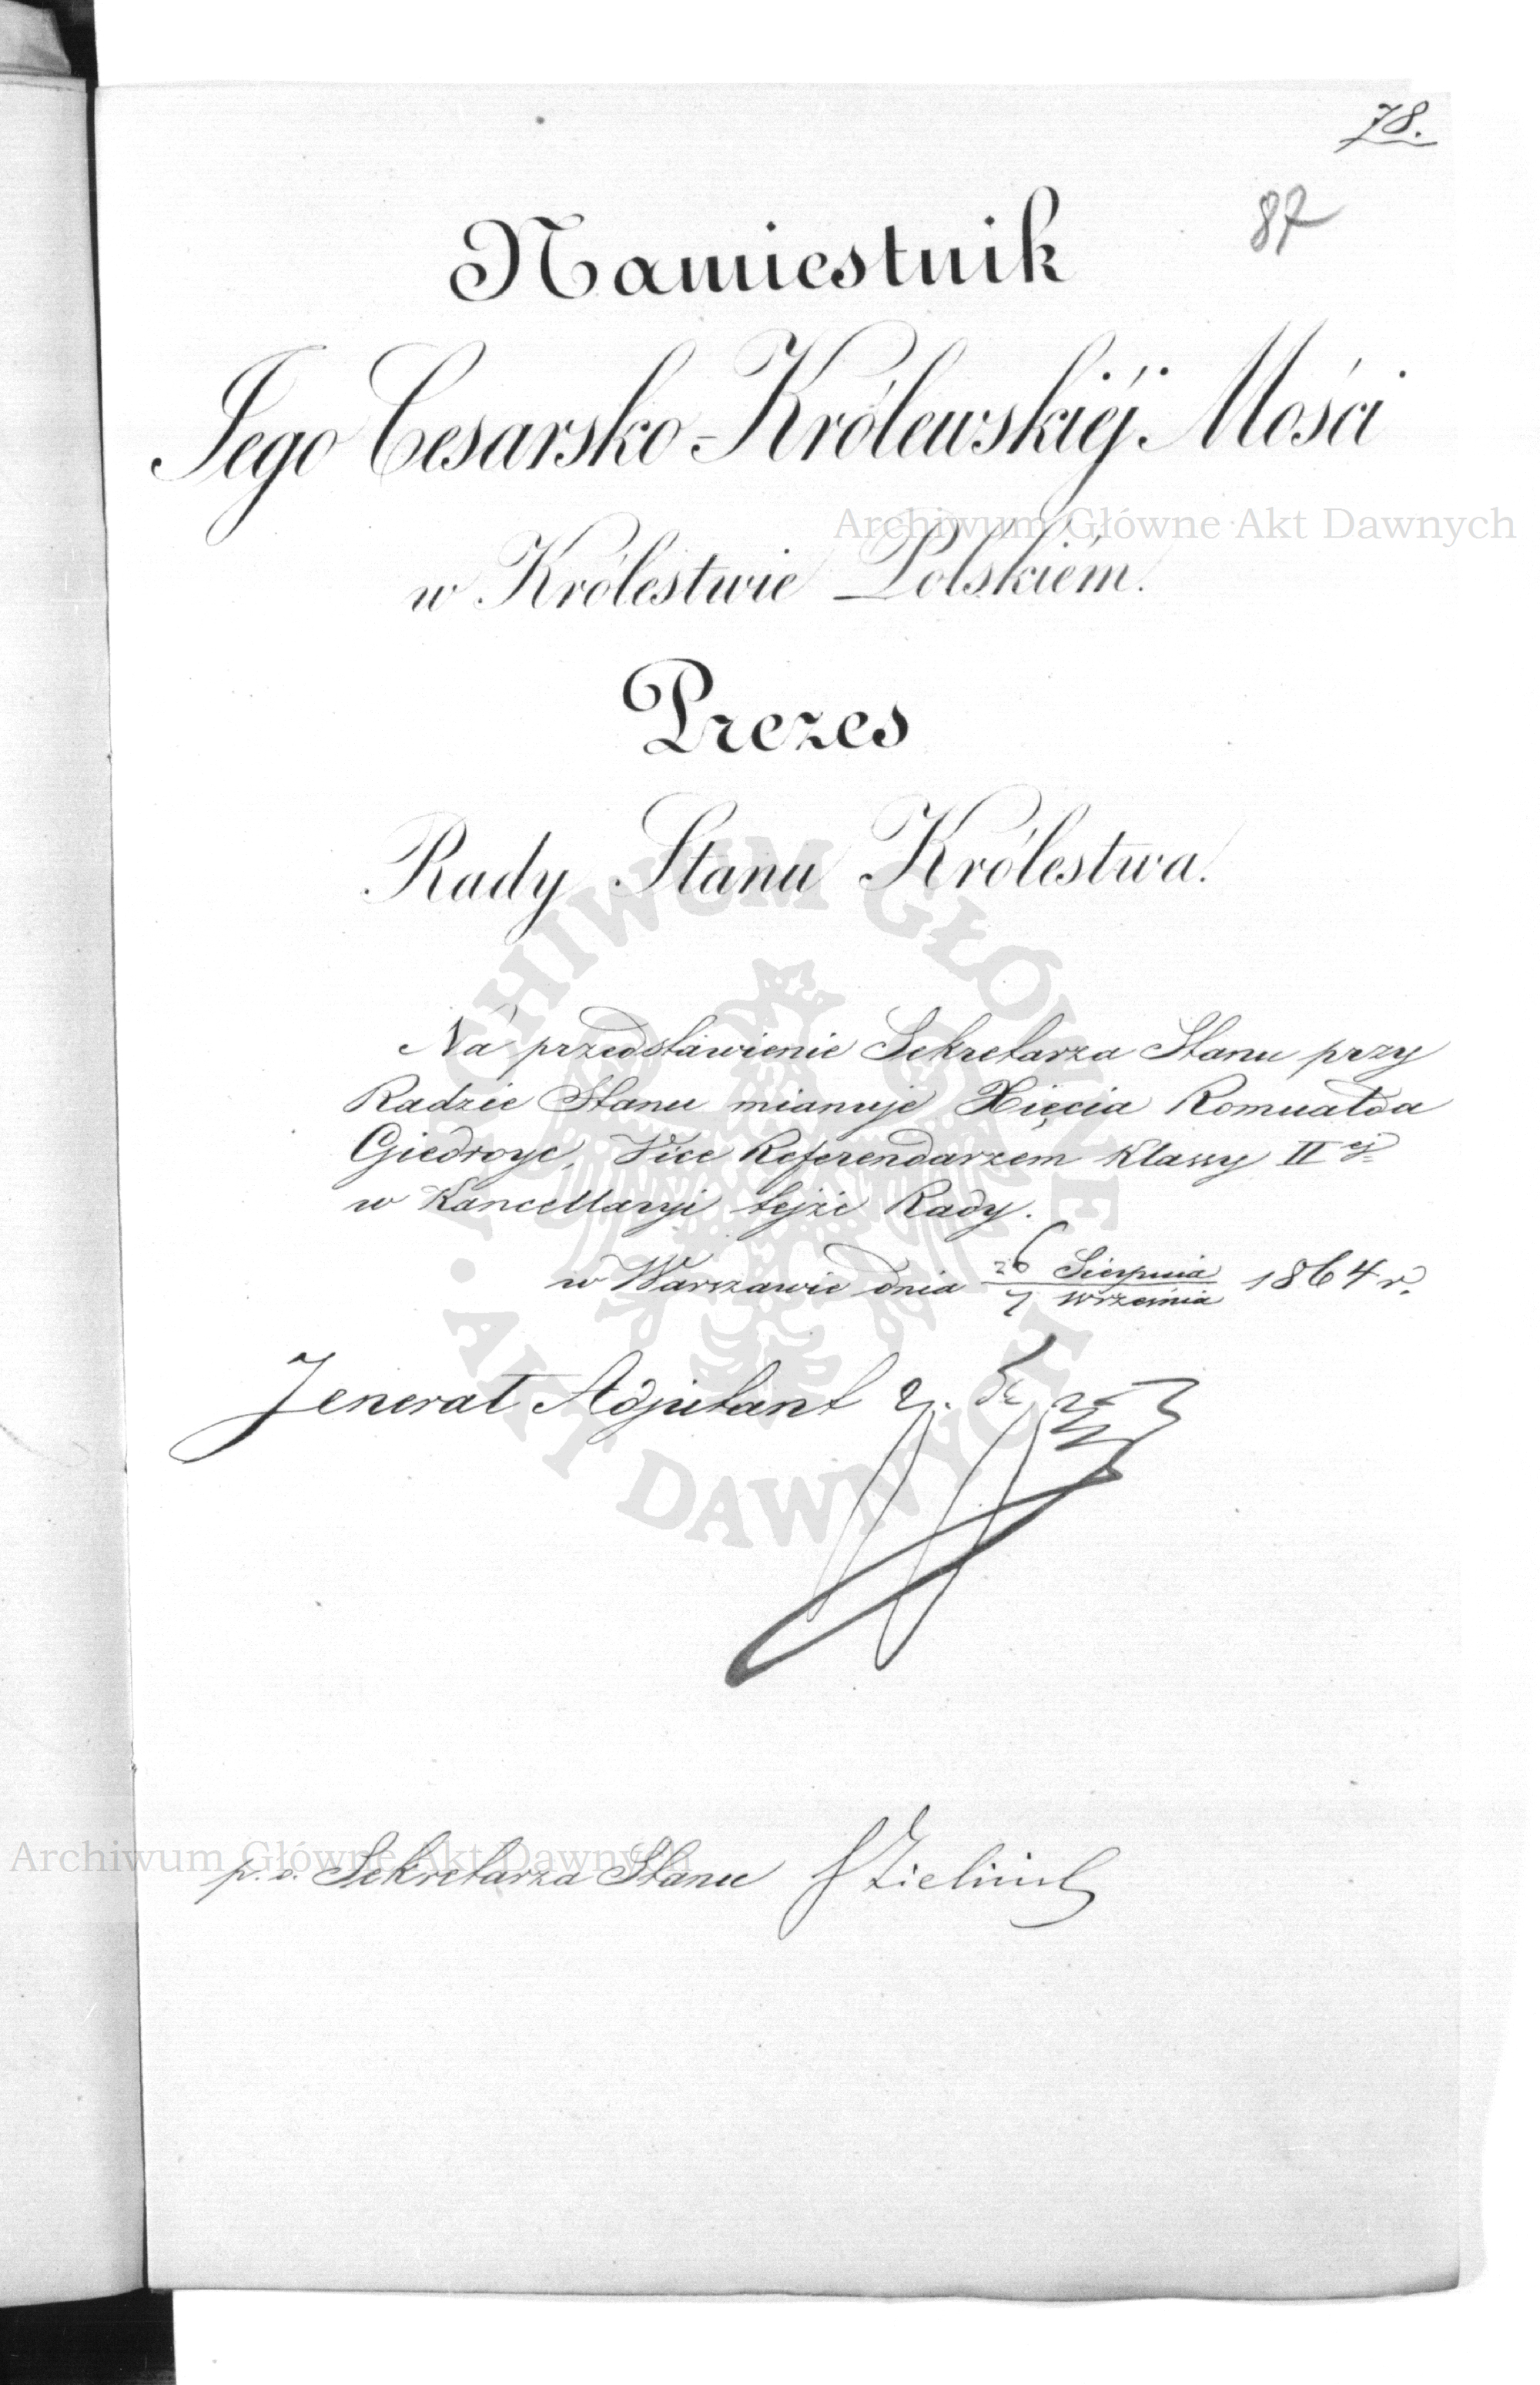 78.
87
Namiestnik
Jego Cesarsko-Królewskiéj Mości
Archiwum Główne Akt Dawnych
w Królestwie Polskiém.
Prezes
Rady Stanu Królestwa.
ARCHIWUM GŁÓWNE
Na przedstawienie Sekretarza Stanu przy
Radzie Stanu mianuje Xięcia Romualda
Giedroyc, Vice Referendarzem Klassy IIej
w Kancellaryi tejże Rady.
w Warszawie dnia 26 Sierpnia / 7 Września 1864 r.
Jenerał Adjutant
AKT DAWNYCH
Archiwum Główne Akt Dawnych
p. o. Sekretarza Stanu